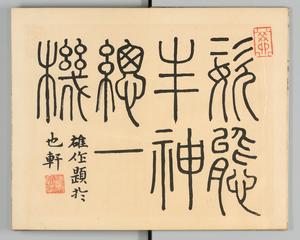 姿態
丰神
總一
機
雄作題於
也軒